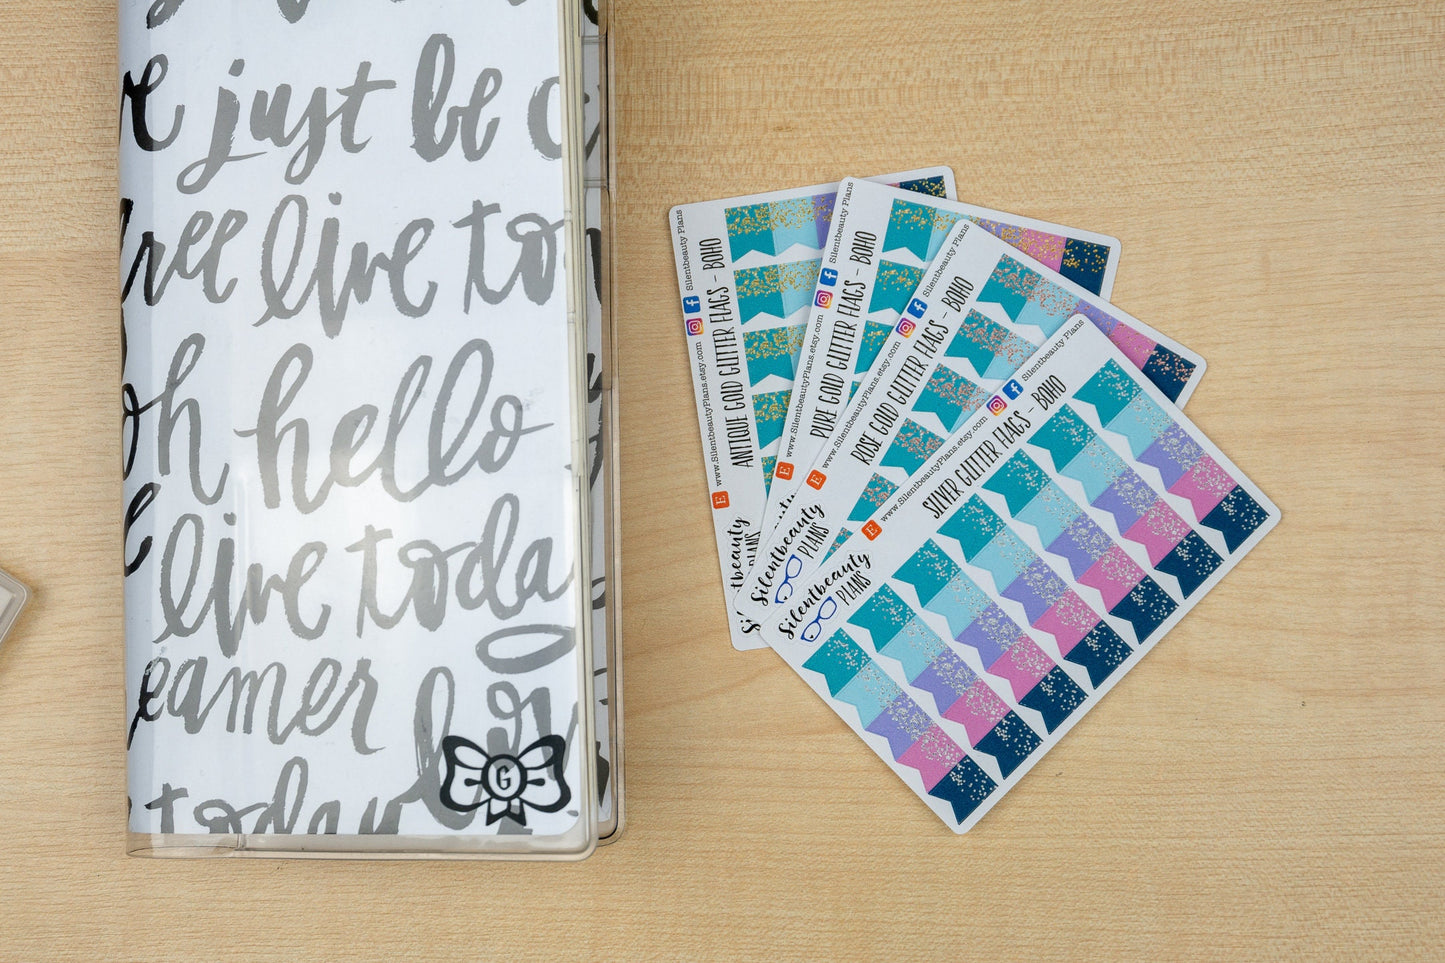 just be
free live to
oh hello
live today
eamer
today
G
Silentbeauty Plans
www.SilentbeautyPlans.etsy.com
ANTIQUE GOLD GLITTER FLAGS - BOHO
Silentbeauty
PLANS
Silentbeauty Plans
www.SilentbeautyPlans.etsy.com
PURE GOLD GLITTER FLAGS - BOHO
Silentbeauty Plans
www.SilentbeautyPlans.etsy.com
ROSE GOLD GLITTER FLAGS - BOHO
Silentbeauty
PLANS
Silentbeauty Plans
www.SilentbeautyPlans.etsy.com
SILVER GLITTER FLAGS - BOHO
Silentbeauty
PLANS